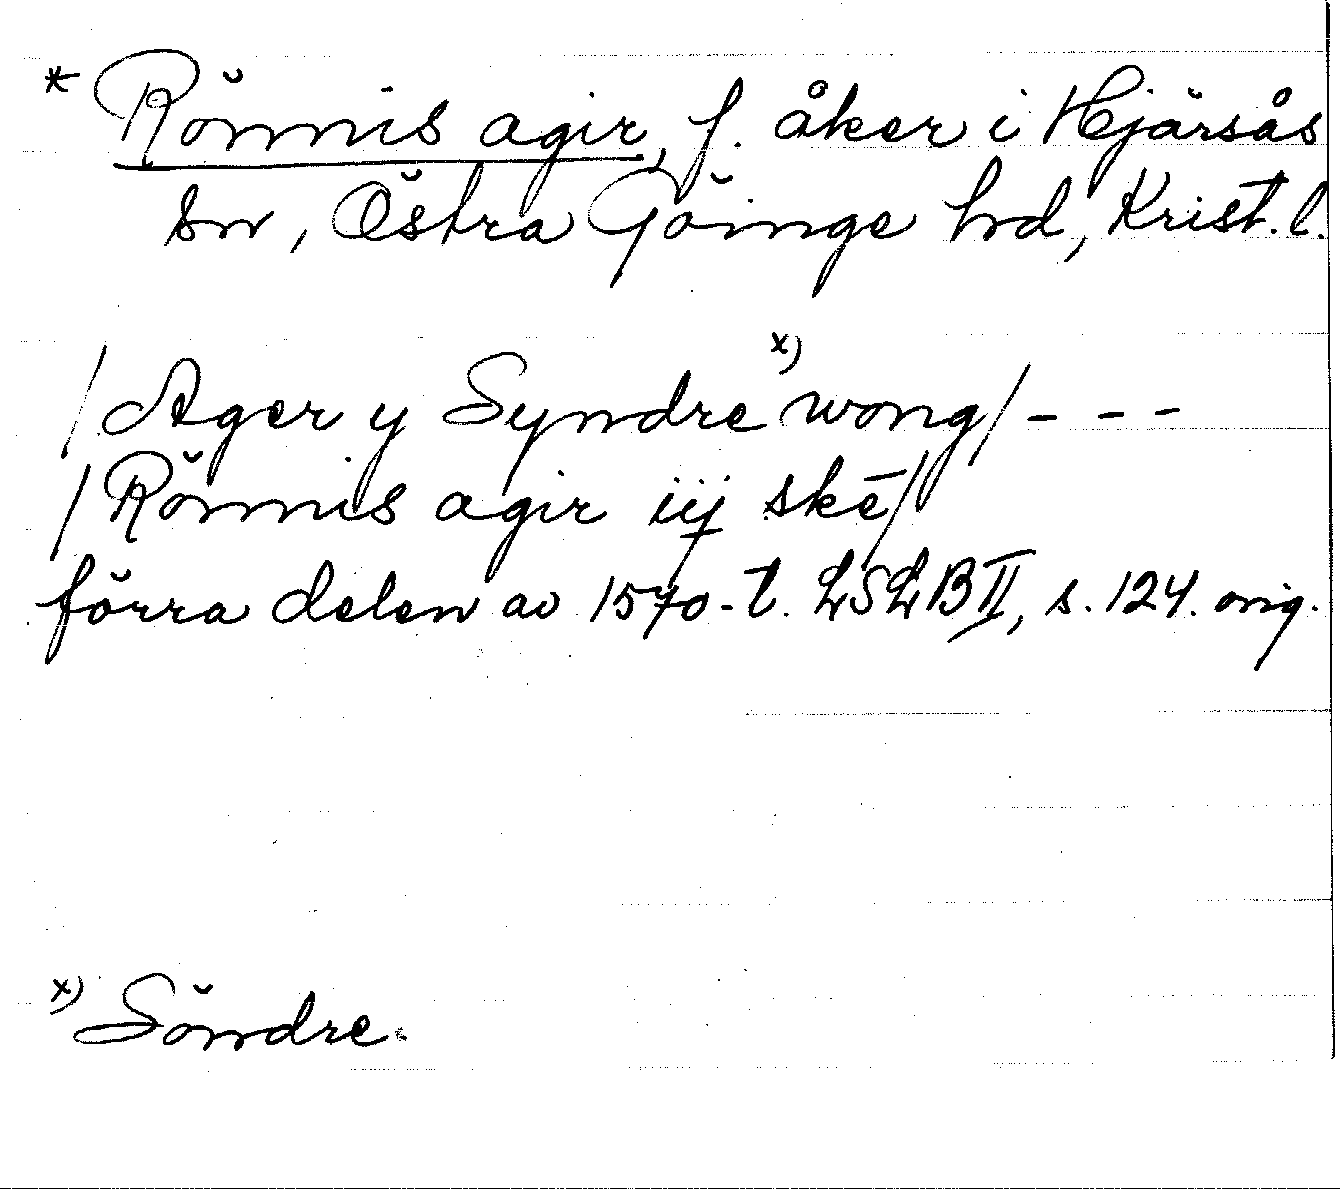 * Rönnis agir, f. åker i Hjärsås
sn, Östra Göinge hrd, Krist. l.
/Ager y Syndre x) wong/ - - -
/Rönnis agir iij skē/
förra delen av 1570-t. LSLB II, s. 124. orig.
x) Söndre.